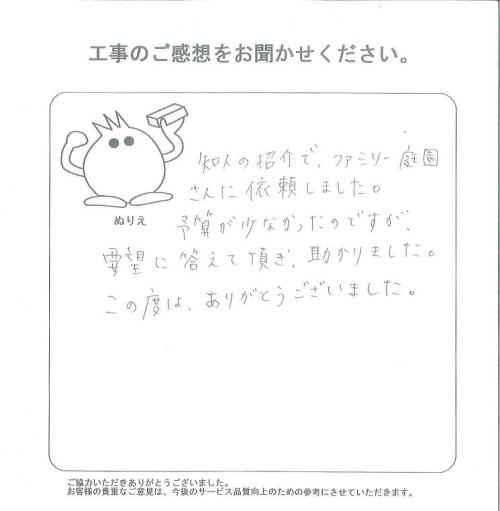 工事のご感想をお聞かせください。
ぬりえ
知人の紹介で、ファミリー庭園
さんに依頼しました。
予算が少なかったのですが、
要望に答えて頂き、助かりました。
この度は、ありがとうございました。
ご協力いただきありがとうございました。
お客様の貴重なご意見は、今後のサービス品質向上のための参考にさせていただきます。